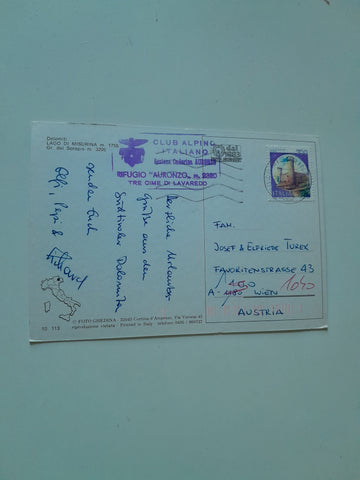 Dolomiti
LAGO DI MISURINA m. 1755
Gr. del Sorapis m. 3205
CLUB ALPINO
ITALIANO
RIFUGIO "AURONZO" m. 2320
TRE CIME DI LAVAREDO
Herzliche Urlaubs-
grüße aus den
Südtiroler Dolomiten
senden Euch
Pepi &
FAM.
JOSEF & ELFRIEDE TUREK
FAVORITENSTRASSE 43
A - WIEN 1040
AUSTRIA
© FOTO GHEDINA - 32043 Cortina d'Ampezzo
riproduzione vietata - Printed in Italy
10 113